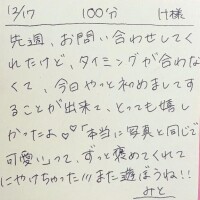 12/17 100分 H様
先週、お問い合わせしてく
れたけど、タイミングが合わな
くて、今日やっと初めましてす
ることが出来て、とっても嬉し
かったよ♡♡「本当に写真と同じで
可愛い」って、ずっと褒めてくれて
にやけちゃった!!!また遊ぼうね!!
みと